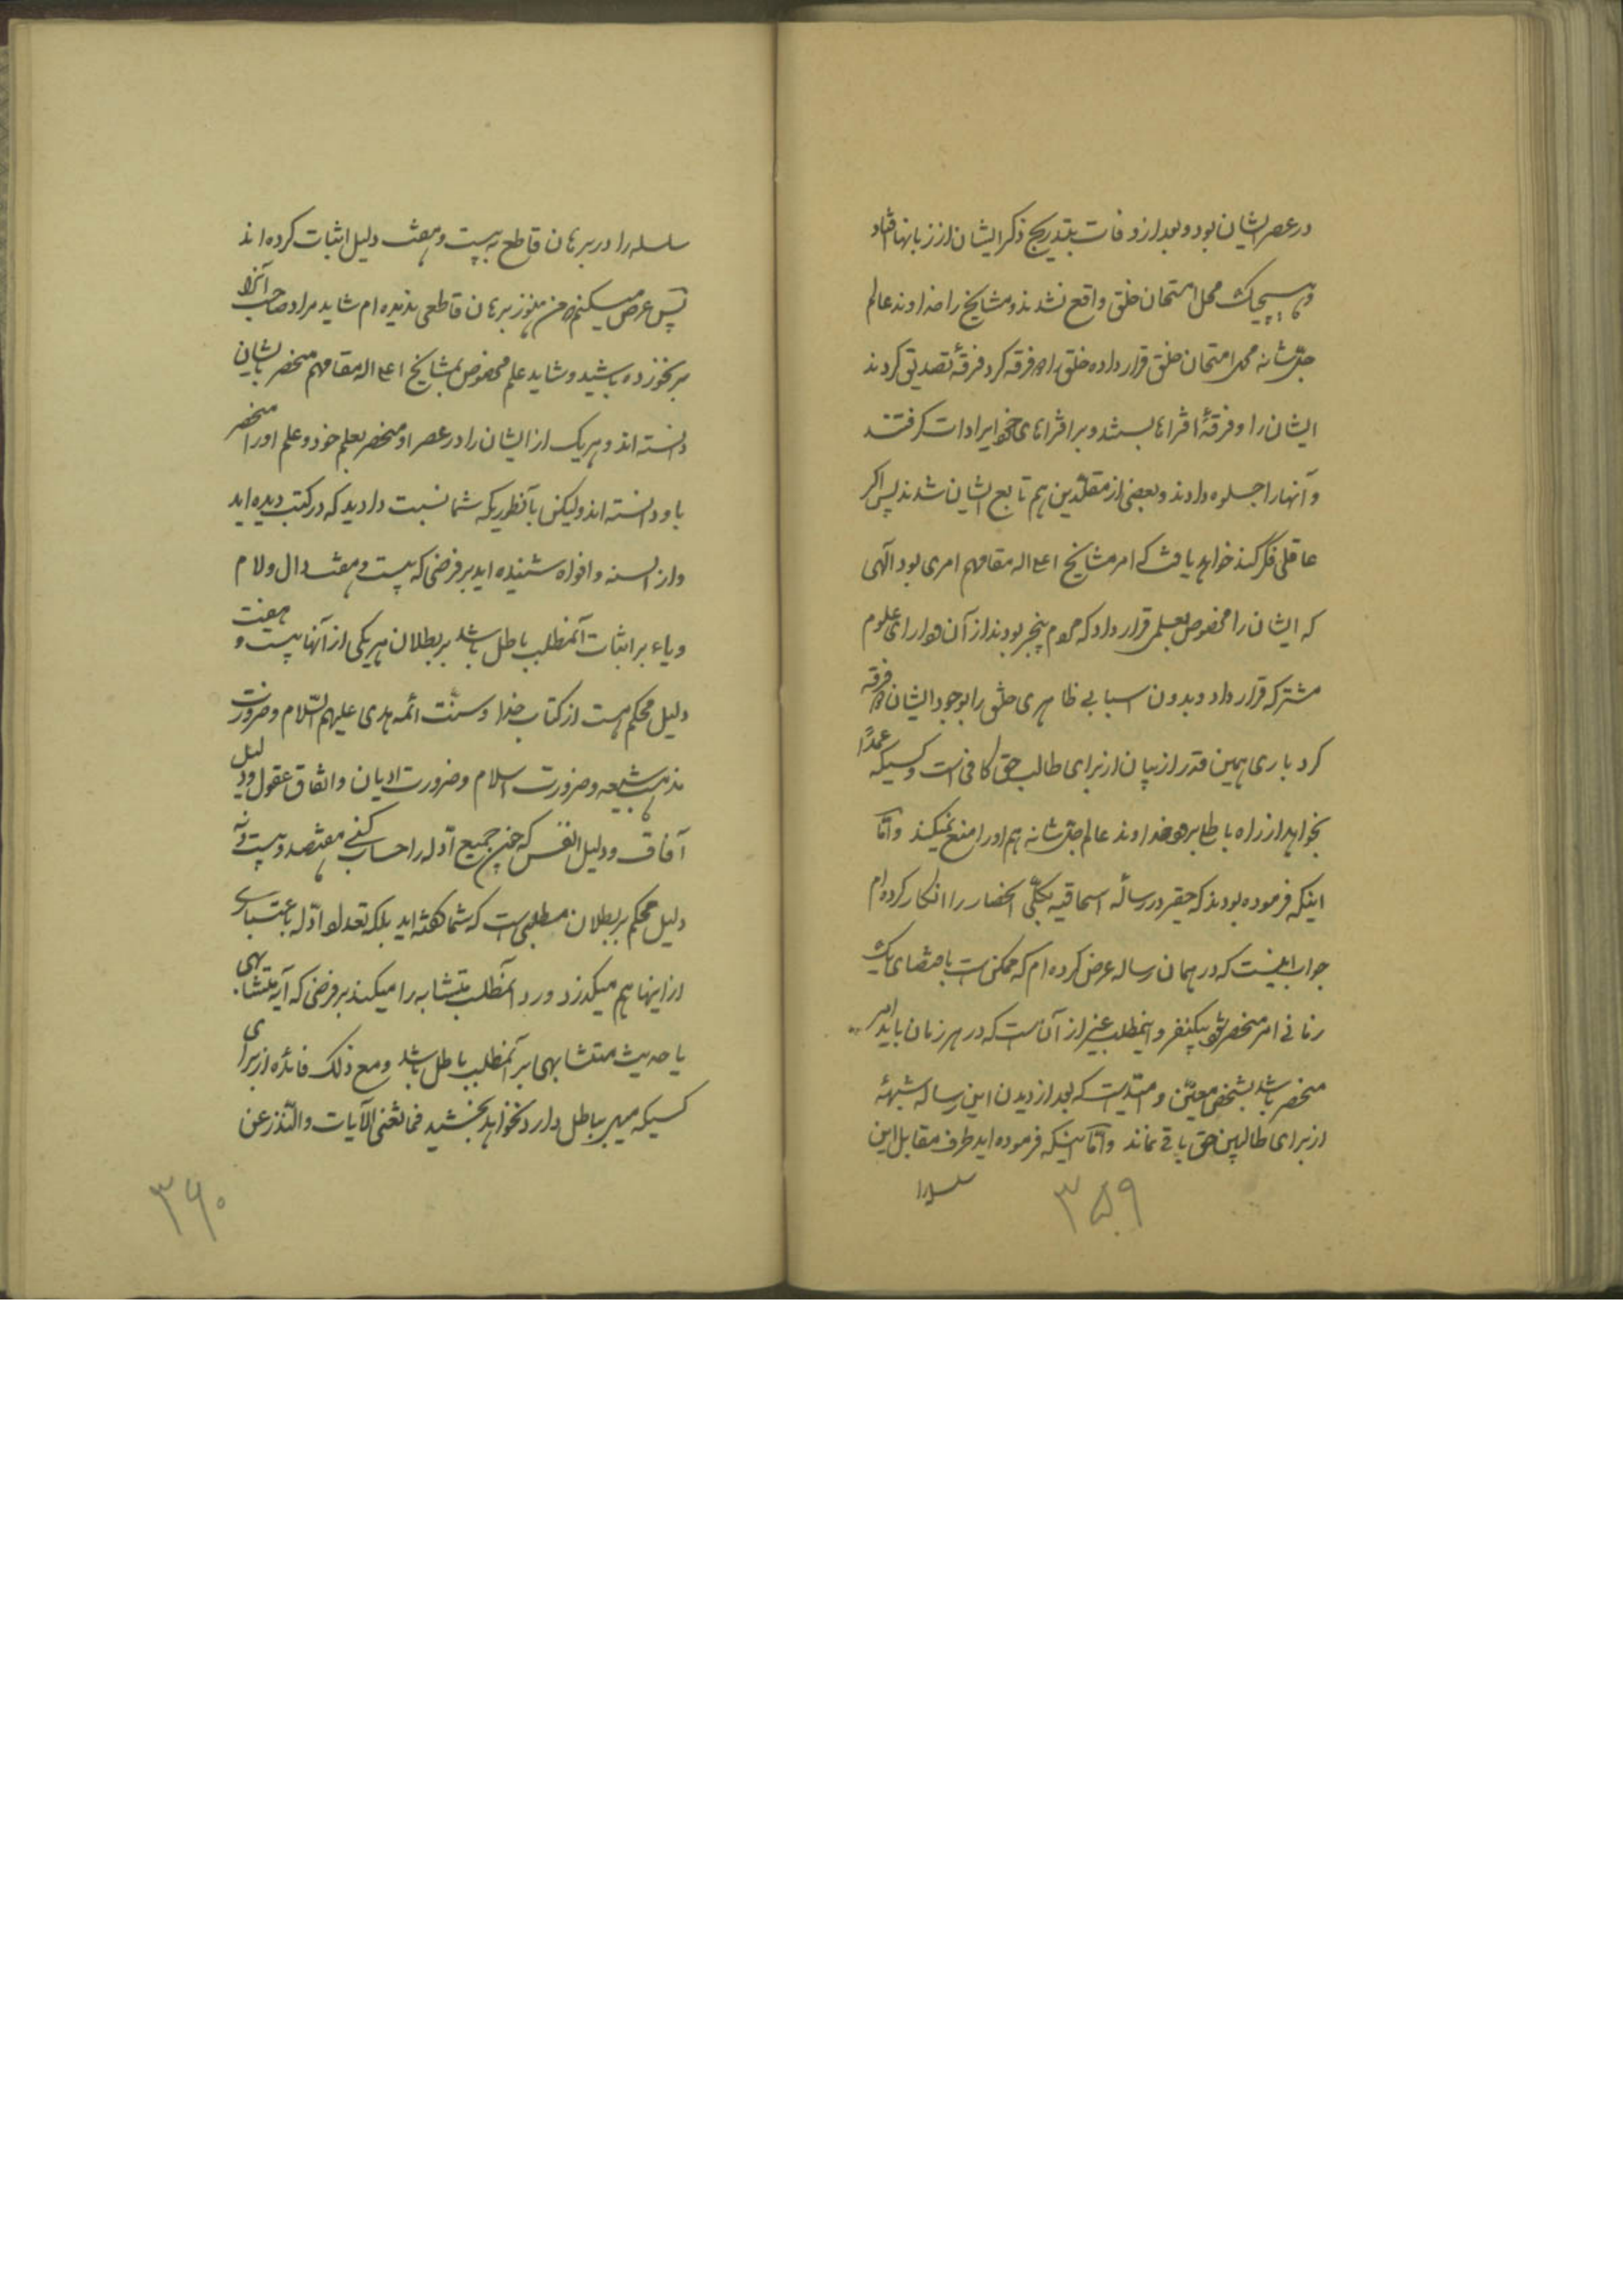 در عصر ایشان بود و بعد از وفات بتدریج ذکر ایشان از زبانها افتاد
و هیچیک محل امتحان خلق واقع نشدند و مشایخ را خداوند عالم
جل شانه محل امتحان خلق قرار داده خلق را دو فرقه کرد فرقهٔ تصدیق کردند
ایشان را و فرقهٔ افتراها بستند و بر افتراهای خود ایرادات گرفتند
و آنها را جلوه دادند و بعضی از مقلدین هم تابع ایشان شدند پس اگر
عاقلی فکر کند خواهد یافت که امر مشایخ اعلی اله مقامهم امری بود الهی
که ایشان را مخصوص بعلمی قرار داد که مردم بیخبر بودند از آن و دارای علوم
مشترکه قرار داد و بدون اسبابی ظاهری خلق را بوجود ایشان دو فرقه
کرد باری همین قدر از بیان از برای طالب حق کافی است و کسیکه عمداً
بخواهد از راه باطل برود خداوند عالم جل شانه هم او را منع نمیکند و اما
اینکه فرموده بودند که حقیر در رساله اسحاقیه بکلی انحصار را انکار کرده‌ام
جواب اینست که در همان رساله عرض کرده‌ام که ممکن است باقتضای یک
زمانی امر منحصر شود بیکنفر و اینمطلب غیر از آن است که در هر زمان باید امر
منحصر باشد بشخص معین و امید است که بعد از دیدن این رساله شبههٔ
از برای طالبین حق باقی نماند و اما اینکه فرموده اید طرف مقابل این
سلسله را
۳۵۹
سلسله را در برهان قاطع به بیست و هفت دلیل اثبات کرده اند
پس عرض میکنم که من هنوز برهان قاطعی ندیده ام شاید مراد صاحب آنرا
برنخورده باشید و شاید علم مخصوص بمشایخ اعلی اله مقامهم منحصر بایشان
دانسته اند و هر یک از ایشان را در عصر او منحصر بعلم خود و علم او را منحصر
باو دانسته اند ولیکن بآنطوریکه شما نسبت دادید که در کتب دیده اید
و از السنه و افواه شنیده اید بر فرضی که بیست و هفت دال و لام
و یاء بر اثبات آنمطلب باطل باشد بر بطلان هر یکی از آنها بیست و هفت
دلیل محکم هست از کتاب خدا و سنت ائمه هدی علیهم السلام و ضرورت
مذهب شیعه و ضرورت اسلام و ضرورت ادیان و اتفاق عقول و دلیل
آفاق و دلیل انفس که چون جمیع ادله را حساب کنی هفتصد و بیست و نه
دلیل محکم بر بطلان مطلبی است که شما گفته اید بلکه تعداد ادله باعتباری
از اینها هم میگذرد و رد آنمطلب متشابه را میکند بر فرضی که آیه متشابهی
یا حدیث متشابهی بر آنمطلب باطل باشد و مع ذلک فائده از برای
کسیکه میل بباطل دارد نخواهد بخشید فما تغنی الآیات و النذر عن
۳۶۰